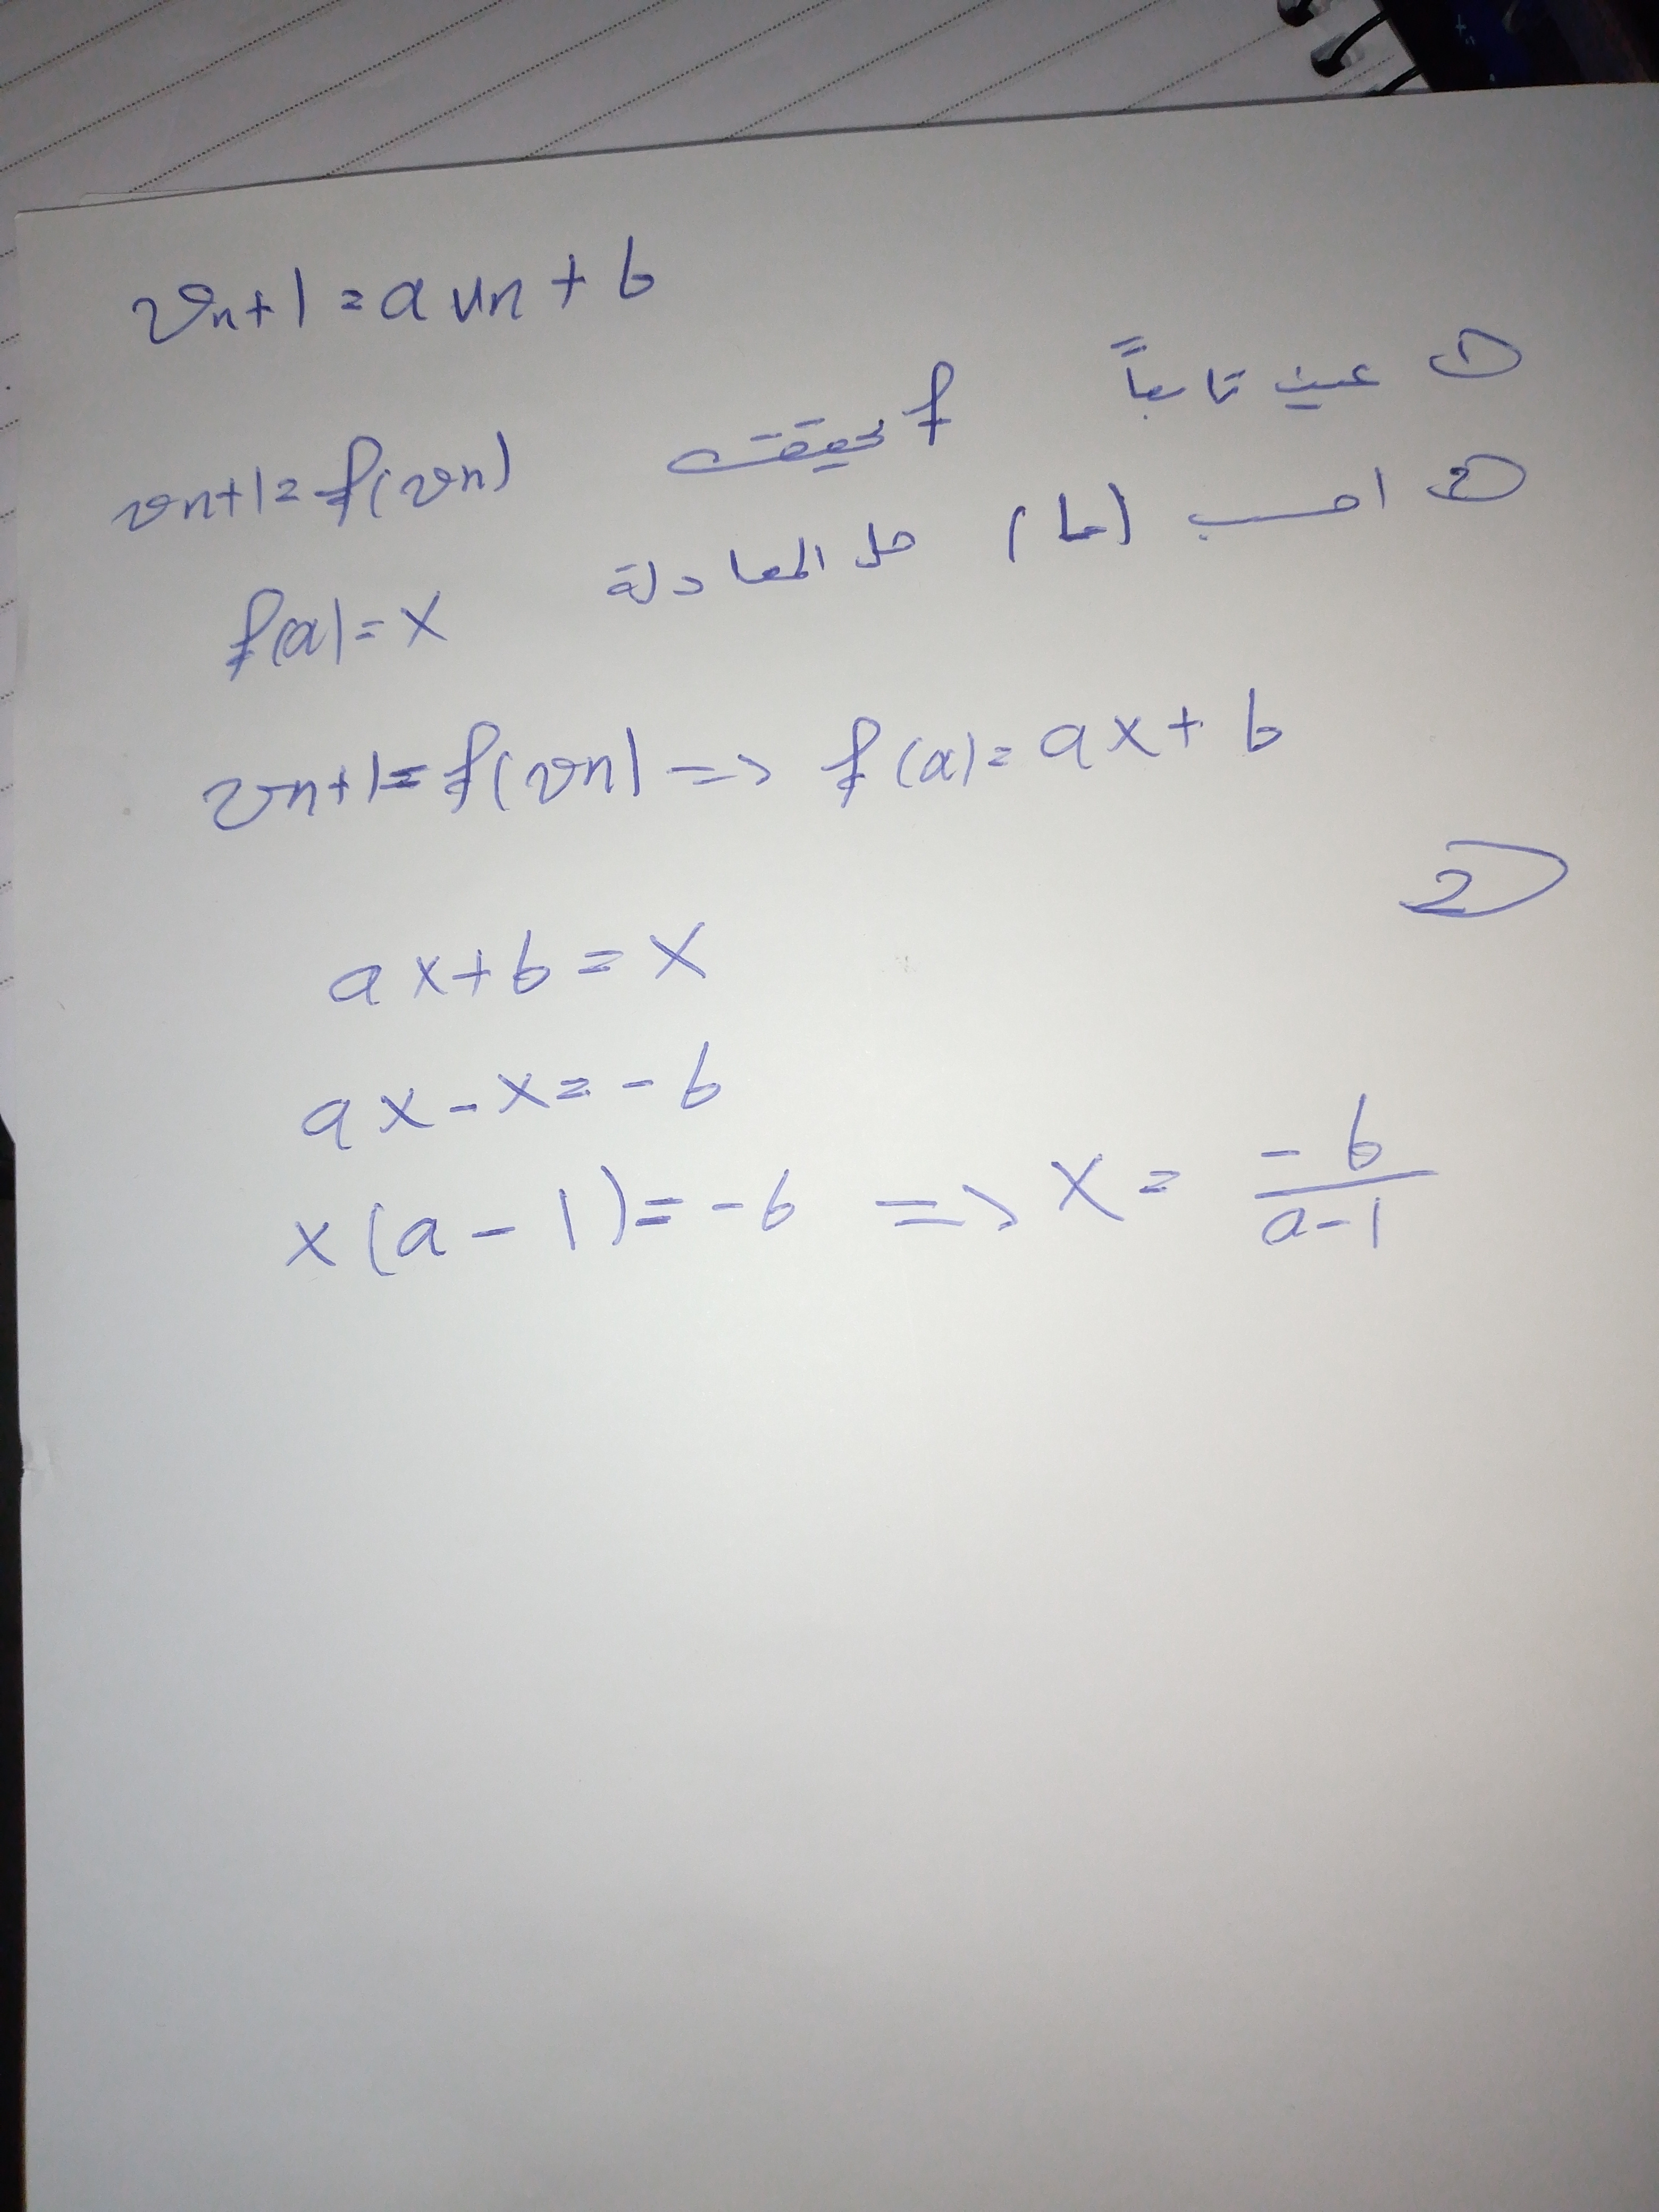 vn+1 = a vn + b
① عين تابعاً f يحقق vn+1 = f(vn)
② احسب (ما) حل المعادلة f(x) = x
vn+1 = f(vn) => f(x) = ax + b
②
ax + b = x
ax - x = - b
x(a - 1) = - b => x = -b/a-1